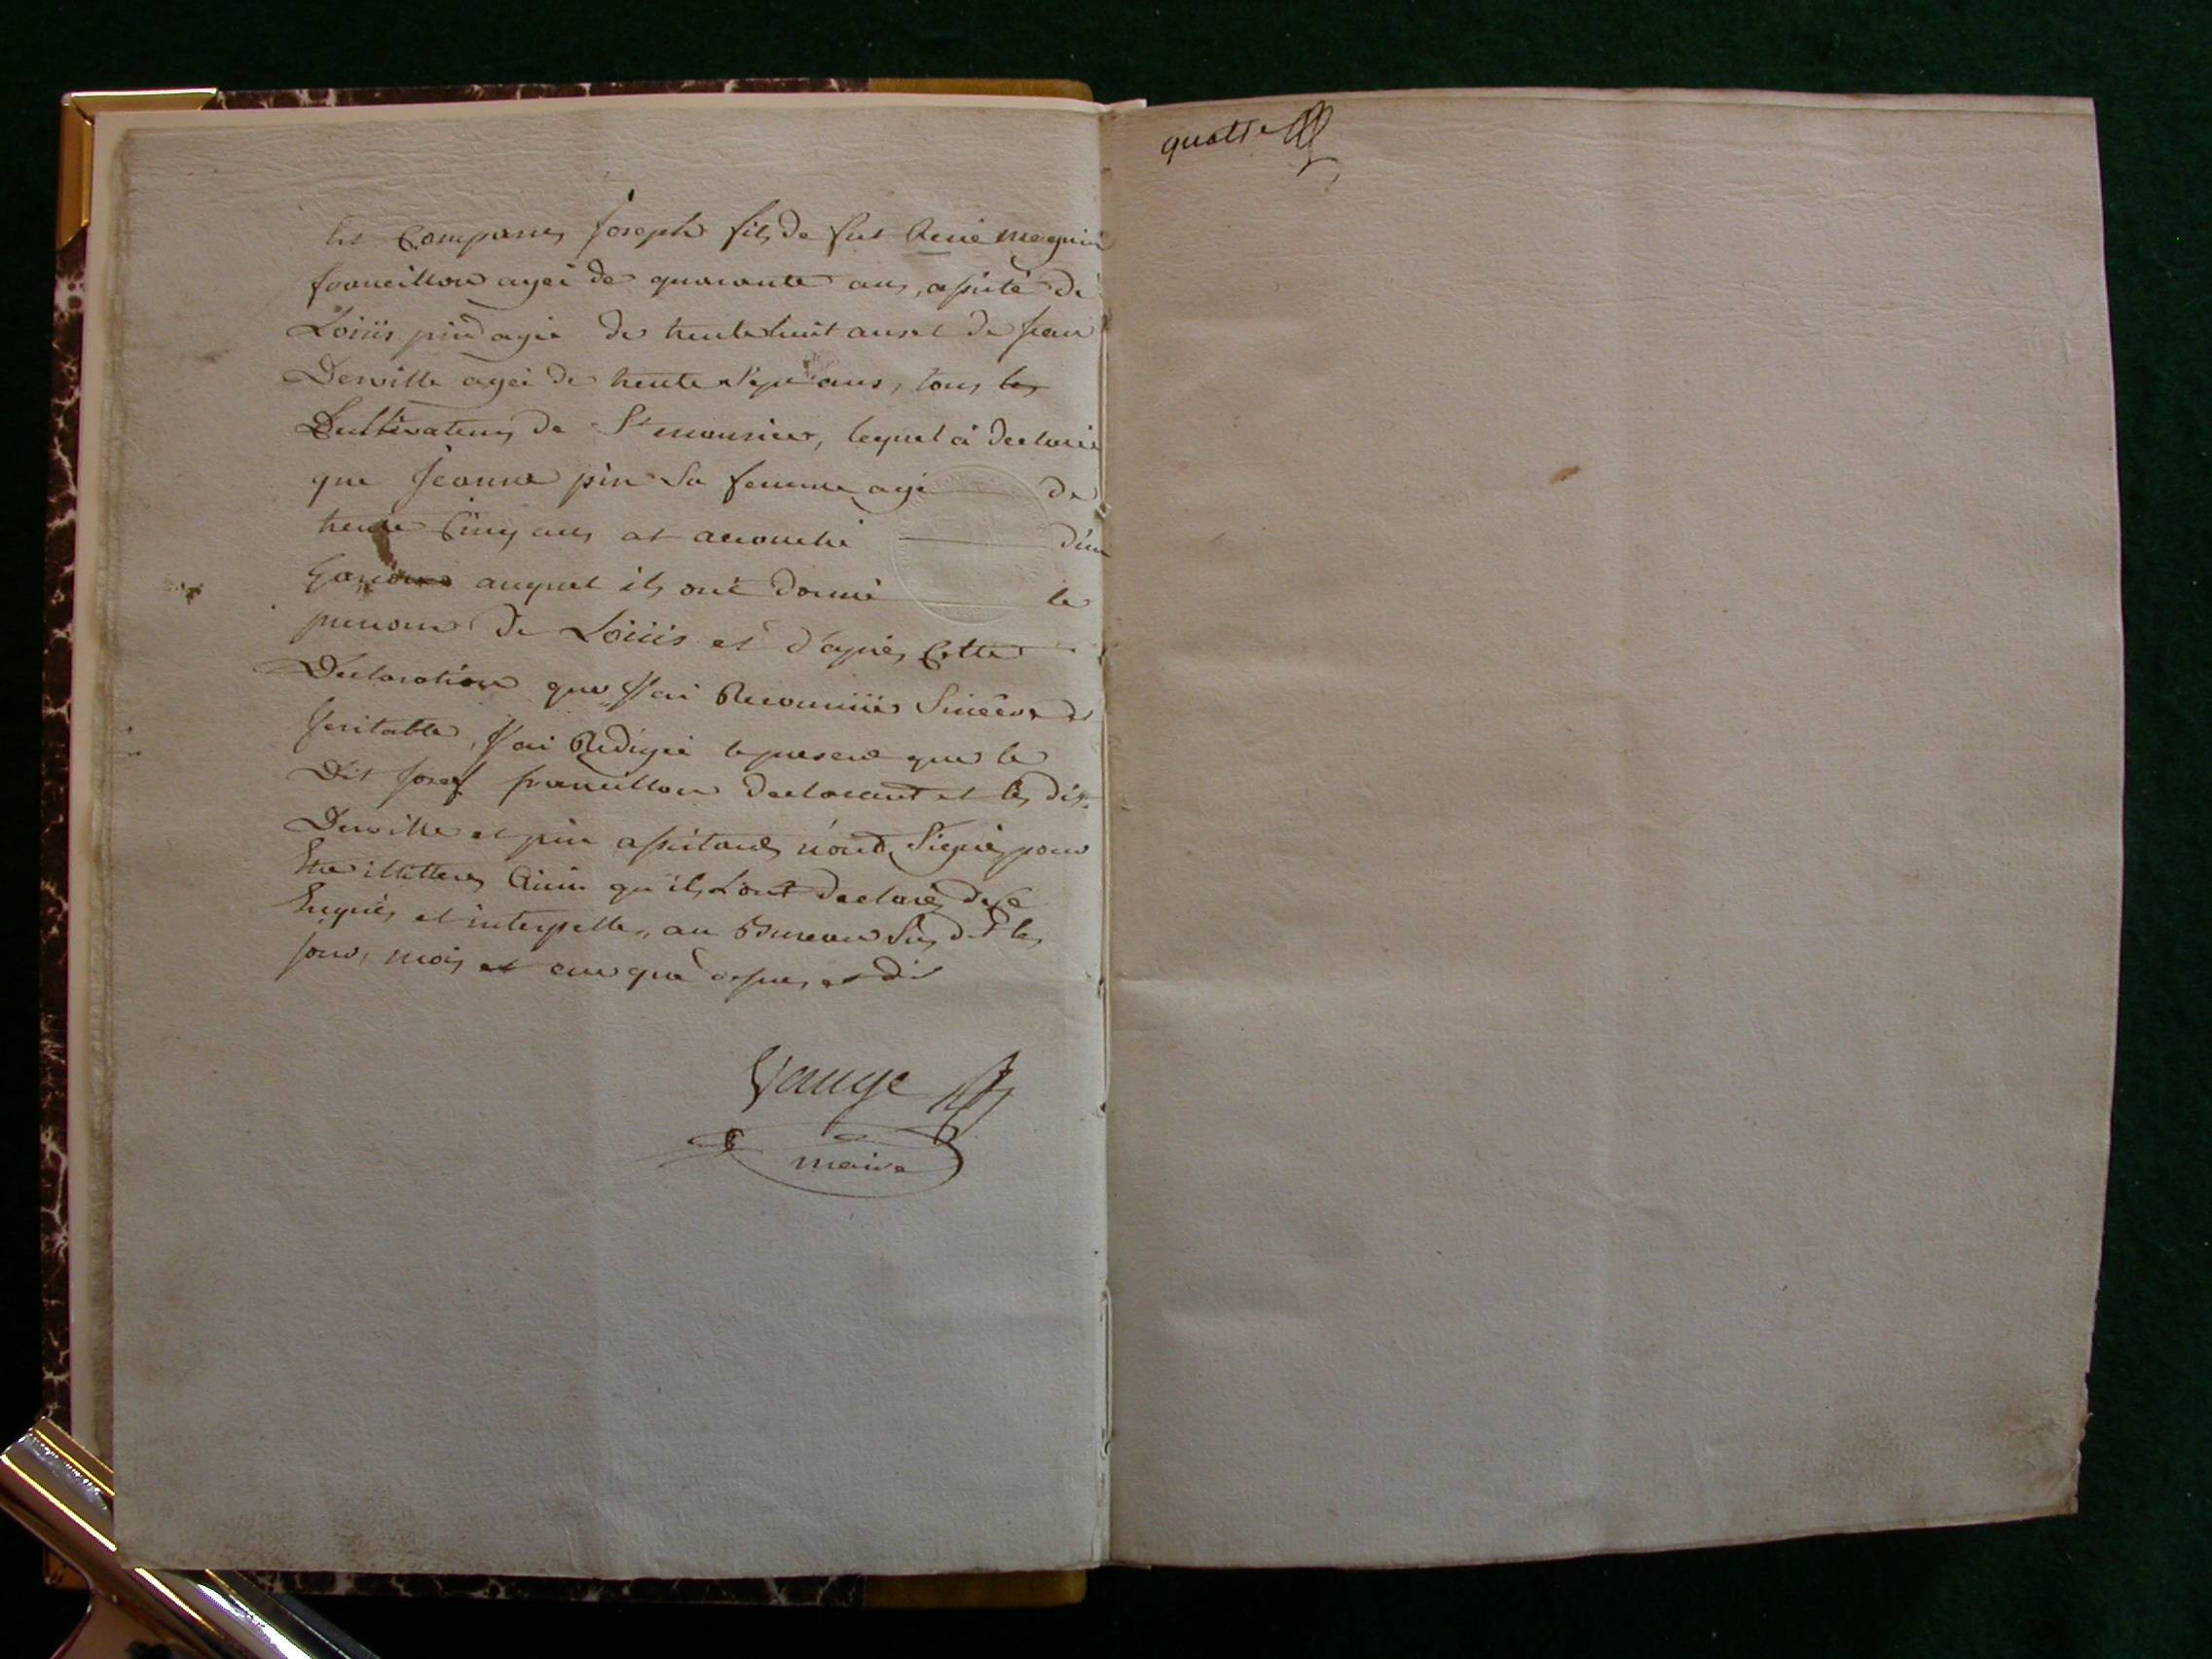 Est Comparus Joseph fils de fut René meguin
francillon ageé de quarante ans, assité de
Loiiis pin agée de trente huit ans et de Jean
Derville ageé de trente sept ans, tous les
Cultivateurs de St maurice, lequel à declaré
que Jeanne pin Sa femme agé de
trente Cinq ans at accouché d'un
Garçons auquel ils ont donné le
prenom de Loiiis et d'aprés Cette
Declaration que J'ai Reconniiës Sincére et
Veritable, J'ai Redigée le present que le
Dit Josef francillon declarant et les dis
Derville et pin assitant n'ont Signés pour
Etre illiterés Ainsi qu'ils L'ont declarés de Ce
Enquis et interpellé, au Bureau Sus dit les
jour, mois et ans que dessus et dis
Vauge
maire
quatre